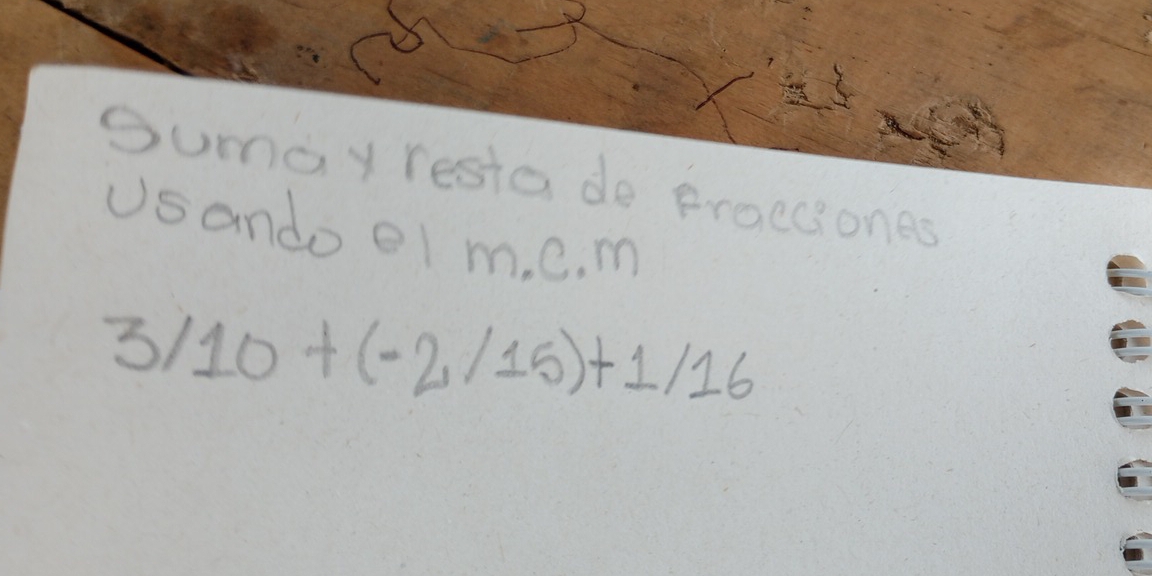 Suma y resta de Fracciones
Usando el m.c.m
3/10 + (-2/15)+1/16